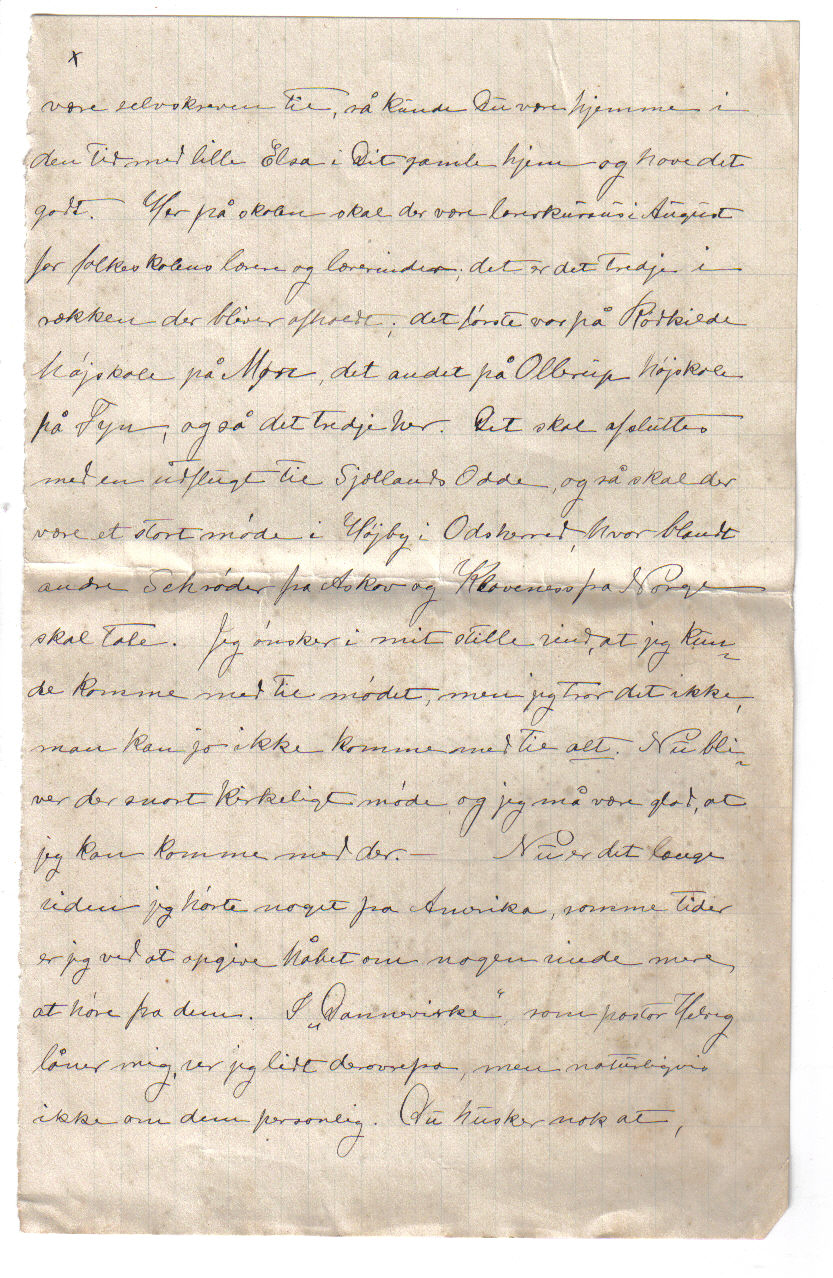 x
være selvskreven til, så kunde Du være hjemme i
den tid med lille Elsa i Dit gamle hjem og have det
godt. Her på skolen skal der være lærerkursus i August
for folkeskolens lærere og lærerinder; det er det tredje i
rækken der bliver afholdt; det første var på Rødkilde
højskole på Møen, det andet på Ollerup højskole
på Fyn, også det tredje her. Det skal afsluttes
med en udflugt til Sjællands Odde, og så skal der
være et stort møde i Højby i Odsherred, hvor blandt
andre Schrøder fra Askov og Klaveness fra Norge
skal tale. Jeg ønsker i mit stille sind, at jeg kun=
de komme med til mødet, men jeg tror det ikke,
man kan jo ikke komme med til alt. Nu bli=
ver der snart kirkeligt møde og jeg må være glad, at
jeg kan komme med der. — Nu er det længe
siden jeg hørte noget fra Amerika, somme tider
er jeg ved at opgive håbet om nogen sinde mere
at høre fra dem. I „Dannevirke“, som pastor Helveg
låner mig, ser jeg lidt derovrefra, men naturligvis
ikke om dem personlig. Du husker nok at,